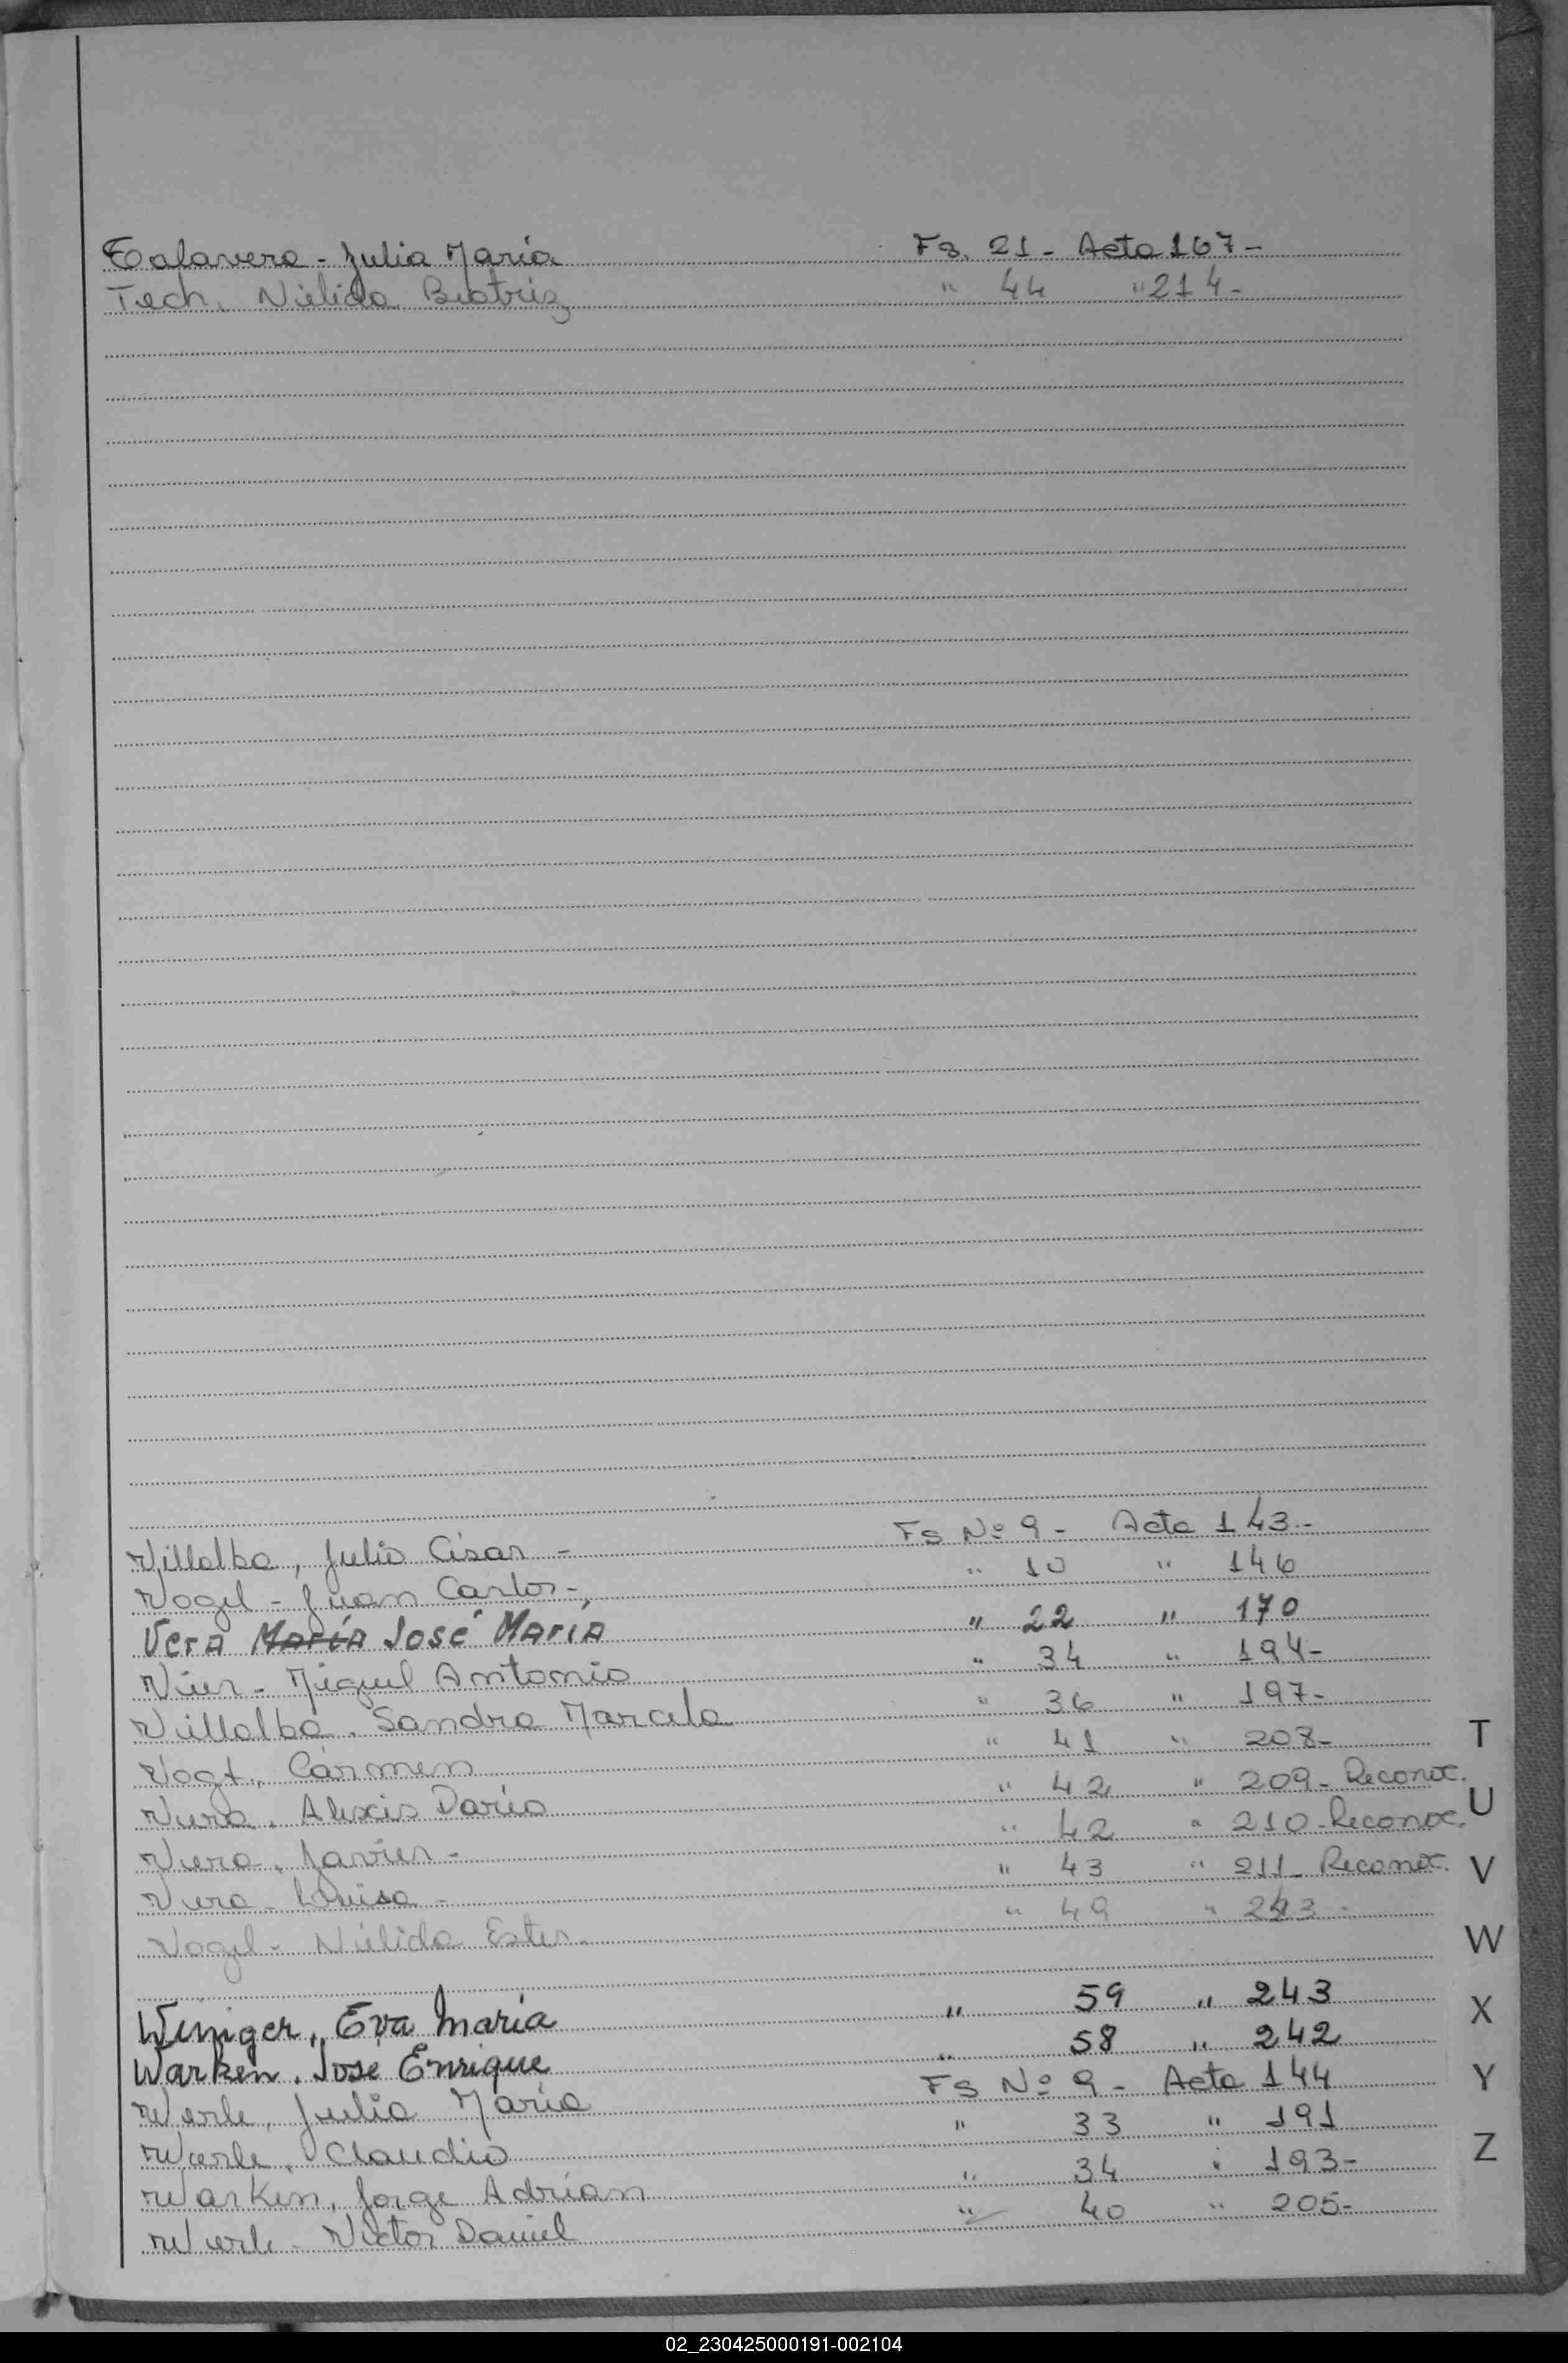 Talavera - Julia María Fs. 21 - Acta 167 -
Tech, Nélida Beatriz " 44 " 214 -
Villalba, Julio César - Fs Nº 9 - Acta 143 -
Vogel - Juan Carlos - " 10 " 146
Vera María José María " 22 " 170
Vier - Miguel Antonio " 34 " 194 -
Villalba, Sandra Marcela " 36 " 197 -
Vogt, Cármen " 41 " 208 -
Viera, Alexis Darío " 42 " 209 - Reconoc.
Viera, Javier - " 42 " 210 - Reconoc.
Viera - Luisa - " 43 " 211 - Reconoc.
Vogel - Nélida Ester - " 49 "
Winiger, Eva María " 59 " 243
Warken, José Enrique " 58 " 242
Werle, Julia María Fs Nº 9 - Acta 144
Werle, Claudio " 33 " 191
Warken, Jorge Adrían " 34 " 193 -
Werle - Victor Daniel " 40 " 205 -
T
U
V
W
X
Y
Z
02_230425000191-002104